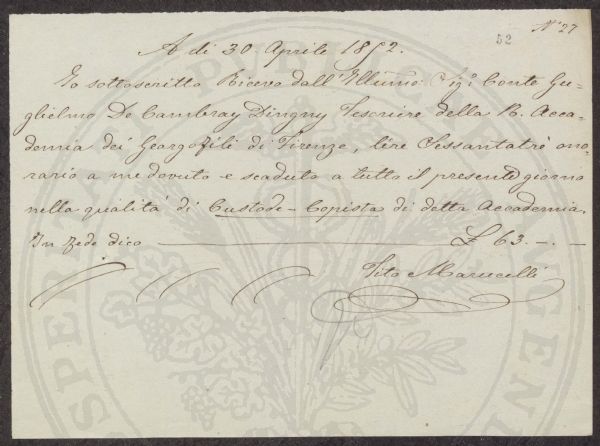 N° 27
52
A di 30. Aprile 1852.
Io sottoscritto Ricevo dall'Illumo: Sig.r Conte Gu-
glielmo De Cambray Digny Tesoriere della R. Acca-
demia dei Georgofili di Firenze, lire Sessantatrè ono-
rario a me dovuto e scaduto a tutto il presente giorno
nella qualità di Custode-Copista di detta Accademia.
In fede dico £ 63.-.-
Tito Marucelli
PUBBLICAE
PROSPERITATI AUGENDAE